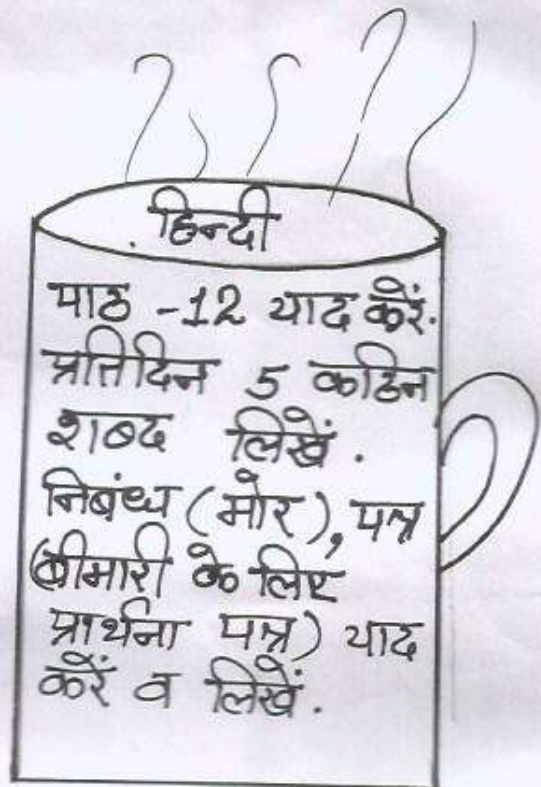 हिन्दी
पाठ -12 याद करें.
प्रतिदिन 5 कठिन
शब्द लिखें.
निबंध (मोर), पत्र
(बीमारी के लिए
प्रार्थना पत्र) याद
करें व लिखें.